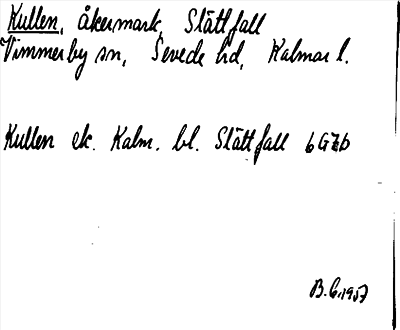 Kullen, åkermark, Slättfall
Vimmerby sn, Sevede hd, Kalmar l.
Kullen ek. Kalm. bl. Slättfall 6G7b
B.G. 1957